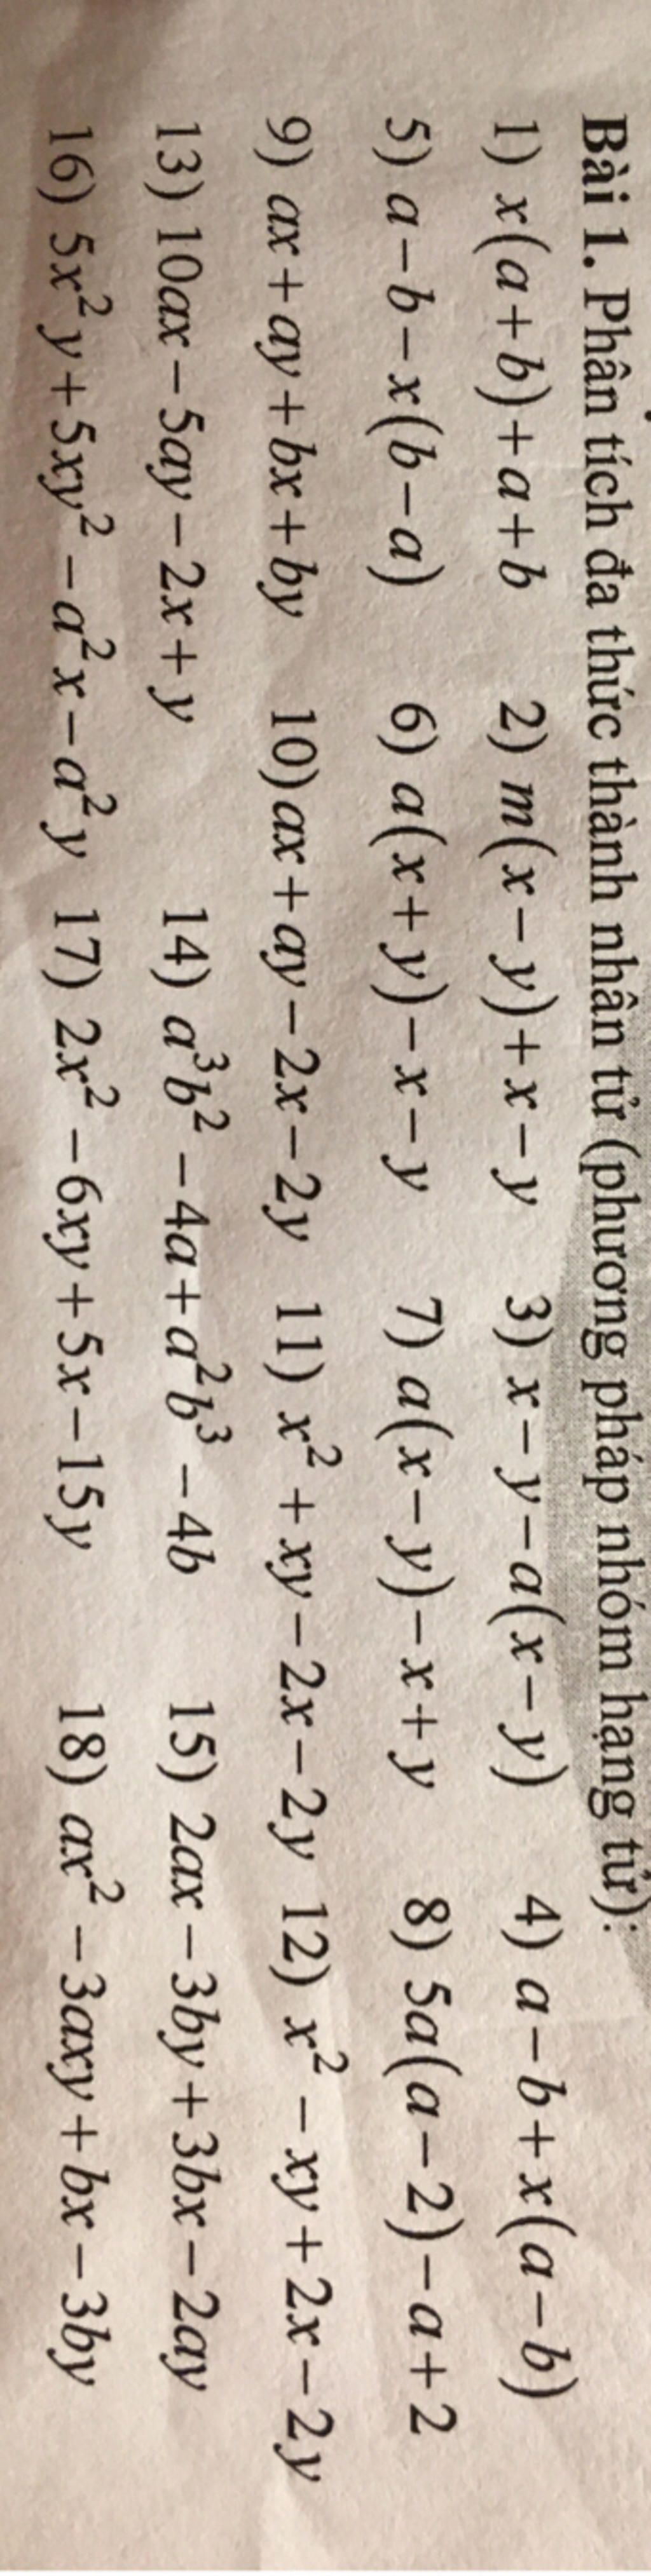 Bài 1. Phân tích đa thức thành nhân tử (phương pháp nhóm hạng tử):
1) x(a+b)+a+b 2) m(x−y)+x−y 3) x−y−a(x−y) 4) a−b+x(a−b)
5) a−b−x(b−a) 6) a(x+y)−x−y 7) a(x−y)−x+y 8) 5a(a−2)−a+2
9) ax+ay+bx+by 10) ax+ay−2x−2y 11) x²+xy−2x−2y 12) x²−xy+2x−2y
13) 10ax−5ay−2x+y 14) a³b²−4a+a²b³−4b 15) 2ax−3by+3bx−2ay
16) 5x²y+5xy²−a²x−a²y 17) 2x²−6xy+5x−15y 18) ax²−3axy+bx−3by